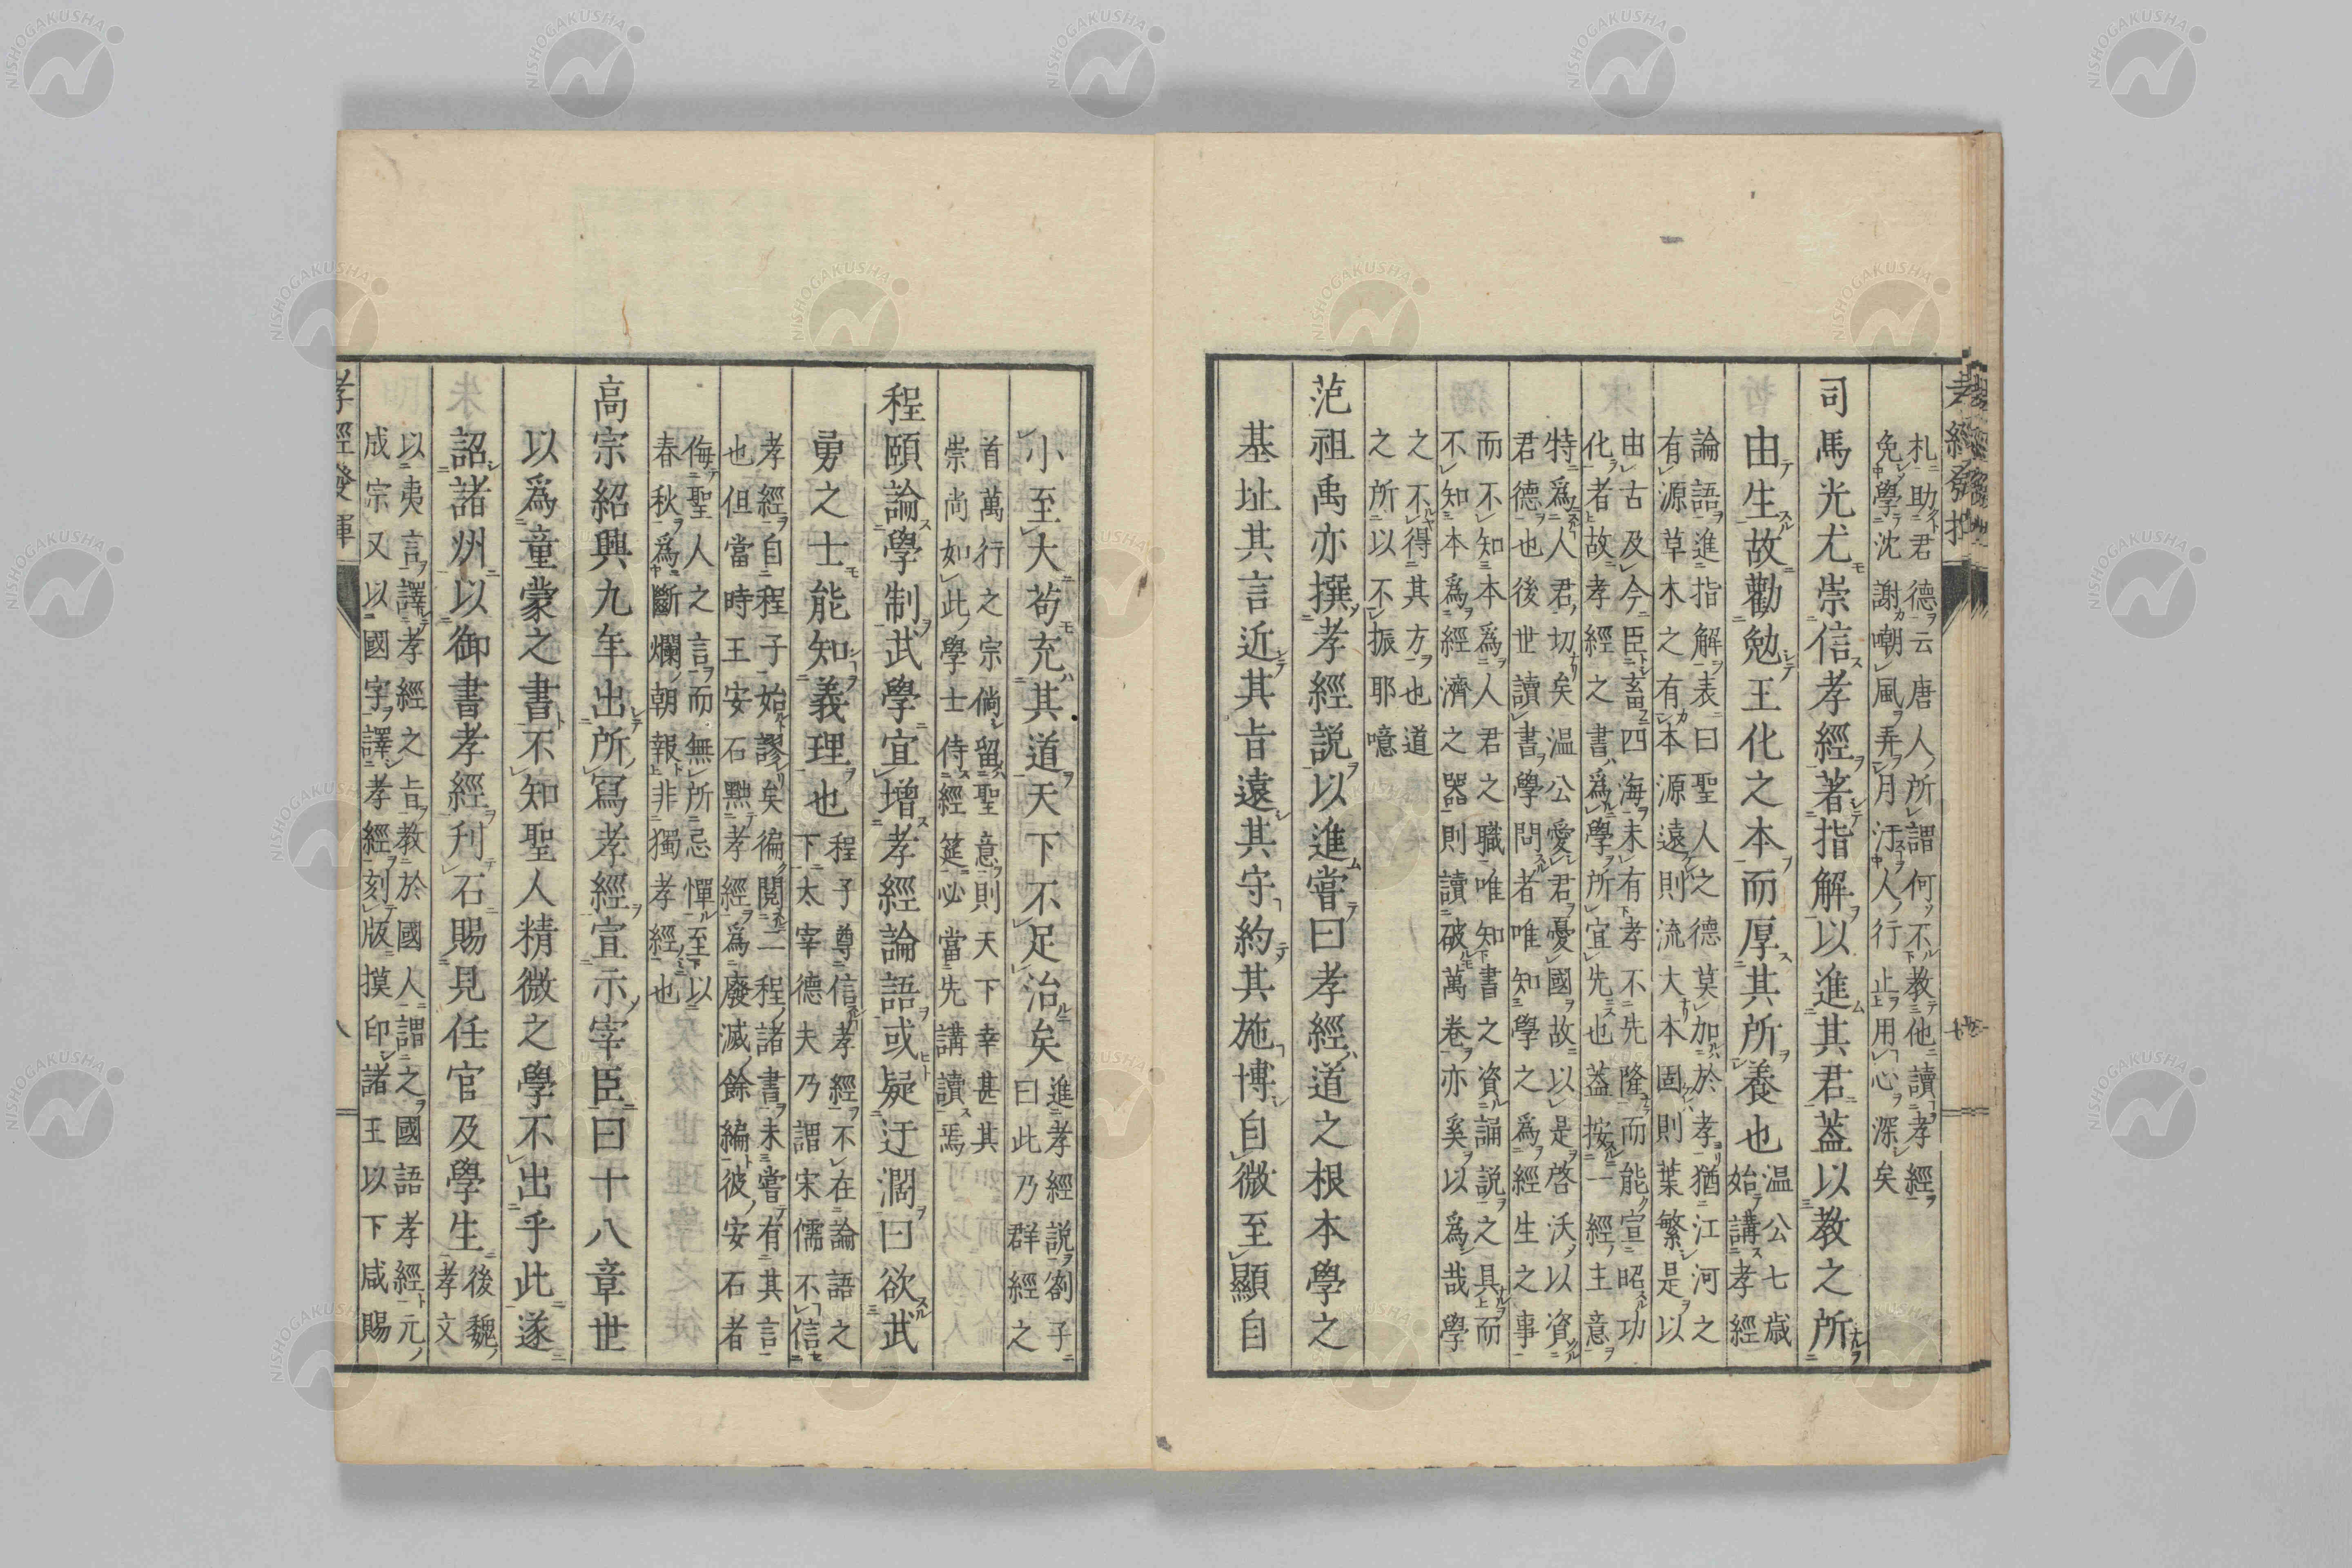 札助君德云唐人所謂何不教他讀孝經
免學沈謝嘲風弄月汙人行止用心深矣
司馬光尤崇信孝經著指解以進其君蓋以教之所
由生故勸勉王化之本而厚其所養也
温公七歳
始講孝經
論語進指解表曰聖人之德莫加於孝猶江河之
有源草木之有本源遠則流大本固則葉繁是以
由古及今臣畜四海未有孝不先隆而能宣昭功
化者故孝經之書爲學所宜先也蓋按一經主意
特爲人君切矣温公愛君憂國故以是啓沃以資
君德也後世讀書學問者唯知學之爲經生之事
而不知本爲人君之職唯知書之資誦説之具而
不知本爲經濟之器則讀破萬卷亦奚以爲哉學
之不得其方也道
之所以不振耶噫
范祖禹亦撰孝經説以進嘗曰孝經道之根本學之
基址其言近其旨遠其守約其施博自微至顯自
小至大苟充其道天下不足治矣
進孝經説劄子
曰此乃群經之
首萬行之宗倘留聖意則天下幸甚其
崇尚如此學士侍經筵必當先講讀焉
程頤論學制武學宜增孝經論語或疑迂濶曰欲武
勇之士能知義理也
程子尊信孝經不在論語之
下太宰德夫乃謂宋儒不信
孝經自程子始謬矣徧閲二程諸書未嘗有其言
也但當時王安石黜孝經爲廢滅餘編彼安石者
侮聖人之言而無所忌憚至以
春秋爲斷爛朝報非獨孝經也
高宗紹興九年出所寫孝經宣示宰臣曰十八章世
以爲童蒙之書不知聖人精微之學不出乎此遂
詔諸州以御書孝經刊石賜見任官及學生
後魏
孝文
以夷言譯孝經之旨教於國人謂之國語孝經元
成宗又以國字譯孝經刻版摸印諸王以下咸賜
孝經發揮
八